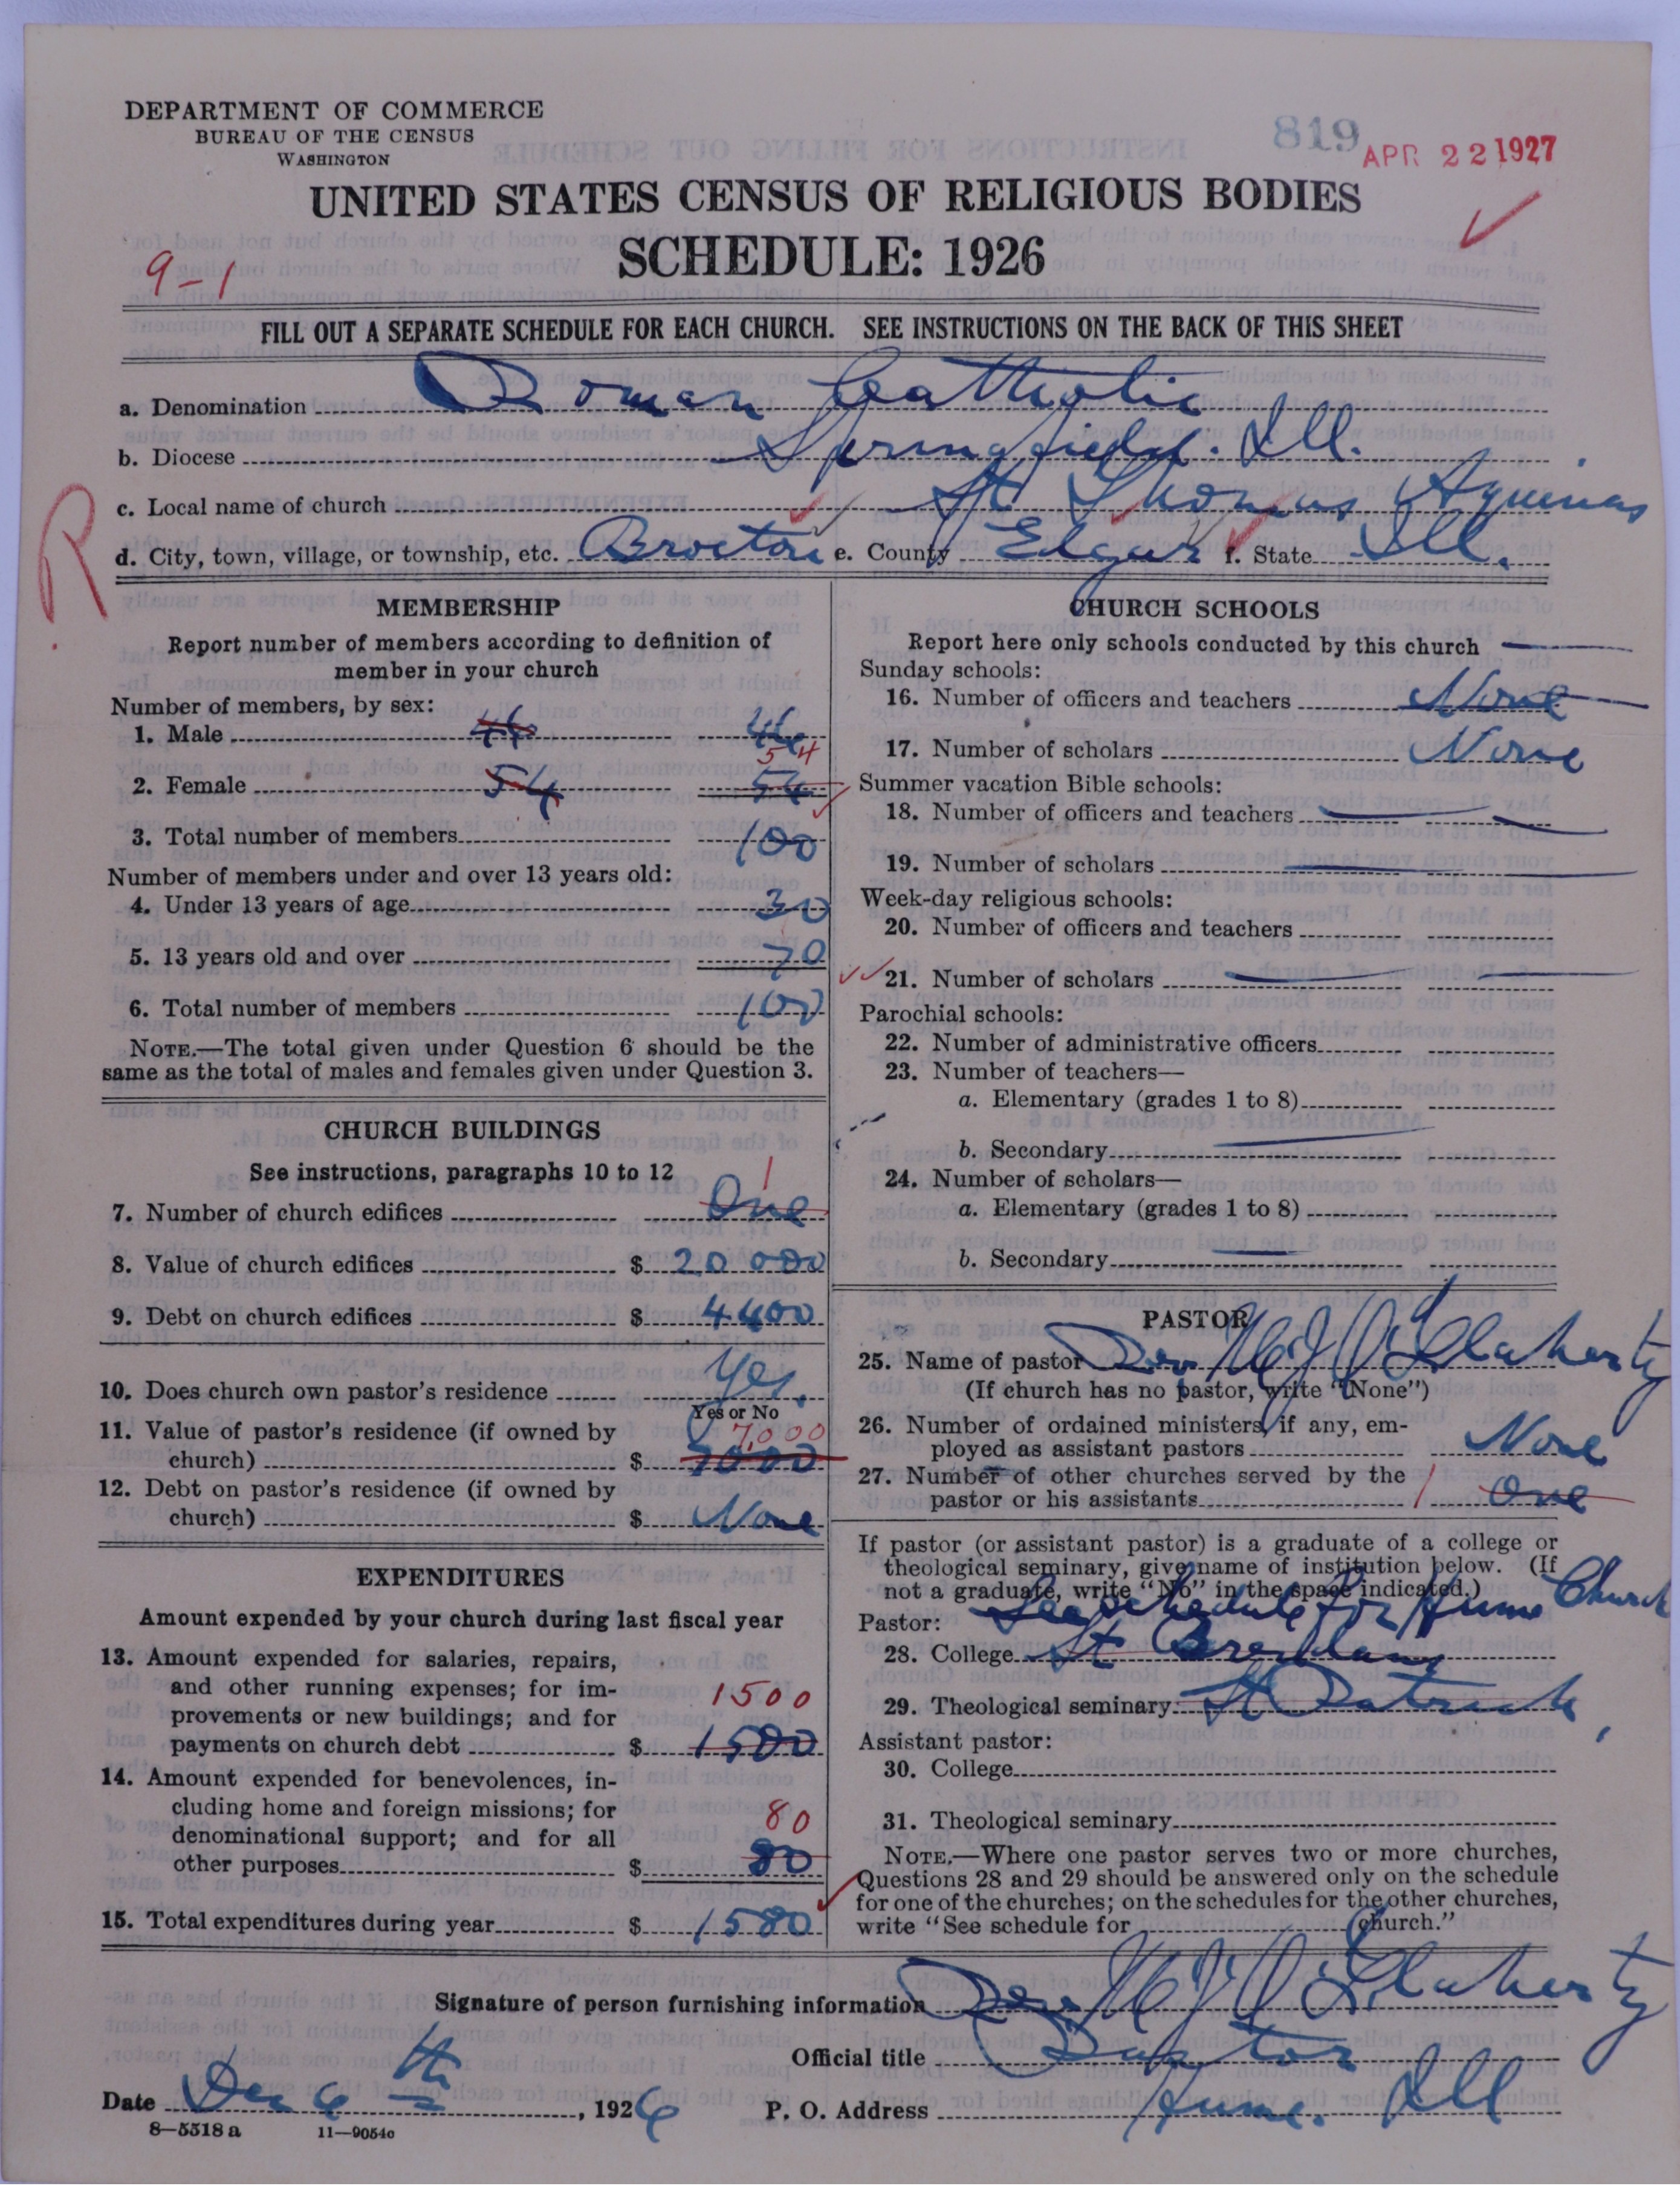 DEPARTMENT OF COMMERCE
BUREAU OF THE CENSUS
WASHINGTON
819
APR 22 1927
UNITED STATES CENSUS OF RELIGIOUS BODIES
SCHEDULE: 1926
9-1
FILL OUT A SEPARATE SCHEDULE FOR EACH CHURCH. SEE INSTRUCTIONS ON THE BACK OF THIS SHEET
a. Denomination Roman Catholic
b. Diocese Springfield. Ill.
c. Local name of church St Thomas Aquinas
d. City, town, village, or township, etc. Brocton e. County Edgar f. State Ill.
R
MEMBERSHIP
Report number of members according to definition of
member in your church
Number of members, by sex:
1. Male 46 46
54
2. Female 54 54
3. Total number of members 100
Number of members under and over 13 years old:
4. Under 13 years of age 30
5. 13 years old and over 70
6. Total number of members 100
NOTE.—The total given under Question 6 should be the
same as the total of males and females given under Question 3.
CHURCH BUILDINGS
See instructions, paragraphs 10 to 12
1
7. Number of church edifices One
8. Value of church edifices $ 20 000
9. Debt on church edifices $ 4400
10. Does church own pastor's residence Yes.
Yes or No
11. Value of pastor's residence (if owned by
7,000
church) $ 7000
12. Debt on pastor's residence (if owned by
church) $ None
EXPENDITURES
Amount expended by your church during last fiscal year
13. Amount expended for salaries, repairs,
and other running expenses; for im-
1500
provements or new buildings; and for
payments on church debt $ 1500
14. Amount expended for benevolences, in-
cluding home and foreign missions; for
80
denominational support; and for all
other purposes $ 80
15. Total expenditures during year $ 1580
CHURCH SCHOOLS
Report here only schools conducted by this church
Sunday schools:
16. Number of officers and teachers None
17. Number of scholars None
Summer vacation Bible schools:
18. Number of officers and teachers
19. Number of scholars
Week-day religious schools:
20. Number of officers and teachers
21. Number of scholars
Parochial schools:
22. Number of administrative officers
23. Number of teachers—
a. Elementary (grades 1 to 8)
b. Secondary
24. Number of scholars—
a. Elementary (grades 1 to 8)
b. Secondary
PASTOR
25. Name of pastor Rev M J O'Flaherty
(If church has no pastor, write "None")
26. Number of ordained ministers, if any, em-
ployed as assistant pastors None
27. Number of other churches served by the
pastor or his assistants 1 One
If pastor (or assistant pastor) is a graduate of a college or
theological seminary, give name of institution below. (If
not a graduate, write "No" in the space indicated.)
See schedule for Hume Church
Pastor:
28. College St Brendans
29. Theological seminary: St Patrick,
Assistant pastor:
30. College
31. Theological seminary
NOTE.—Where one pastor serves two or more churches,
Questions 28 and 29 should be answered only on the schedule
for one of the churches; on the schedules for the other churches,
write "See schedule for church."
Signature of person furnishing information Rev M J O'Flaherty
Official title Pastor
Date Dec 6 th, 1926
P. O. Address Hume. Ill
8—5518 a 11—9054c